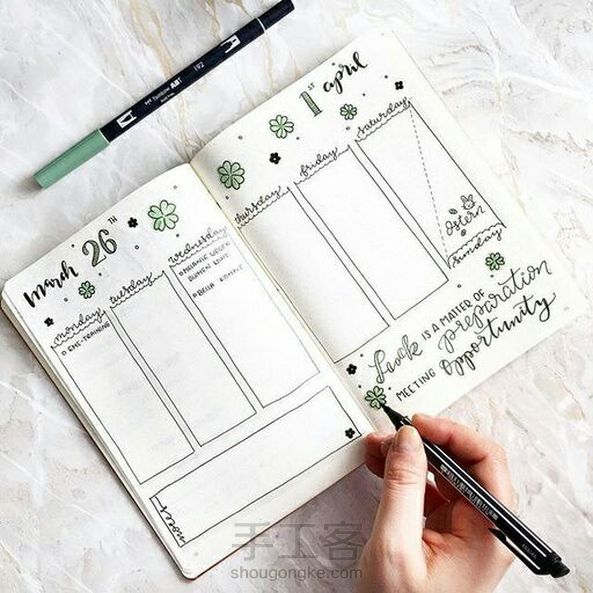 192
TOMBOW ABT
March 26TH
monday
○ EMS-TRAINING
tuesday
wednesday
BLUMEN
○ BELLA KOMMT
notes
1ST april
thursday
friday
saturday
Ostern
sunday
Luck IS A MATTER OF
preparation
MEETING opportunity
手工客
shougongke.com